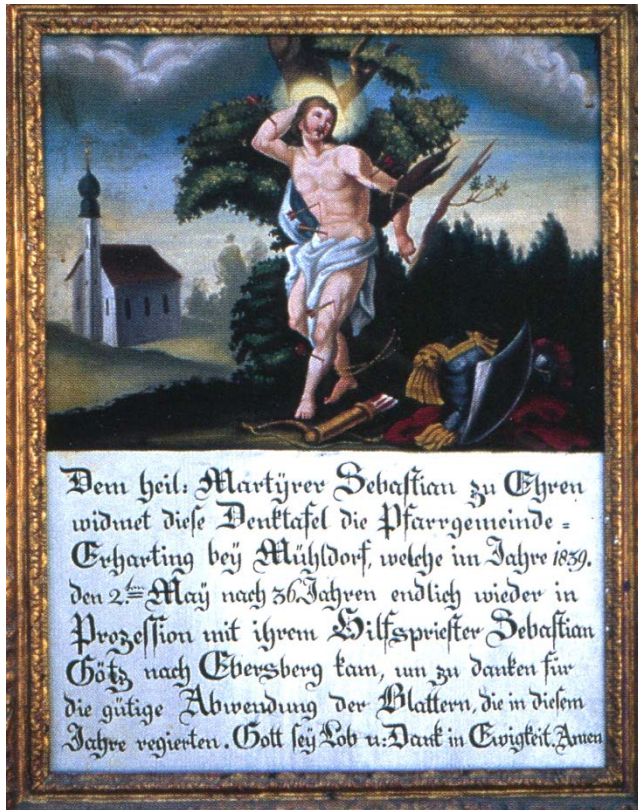 Dem heil: Martÿrer Sebastian zu Ehren
widmet diese Denktafel die Pfarrgemeinde =
Erharting beÿ Mühldorf, welche im Jahre 1839.
den 2.ten Maÿ nach 36 Jahren endlich wieder in
Prozession mit ihrem Hilfspriester Sebastian
Götz nach Ebersberg kam, um zu danken für
die gütige Abwendung der Blattern, die in diesem
Jahre regierten. Gott seÿ Lob u: Dank in Ewigkeit. Amen